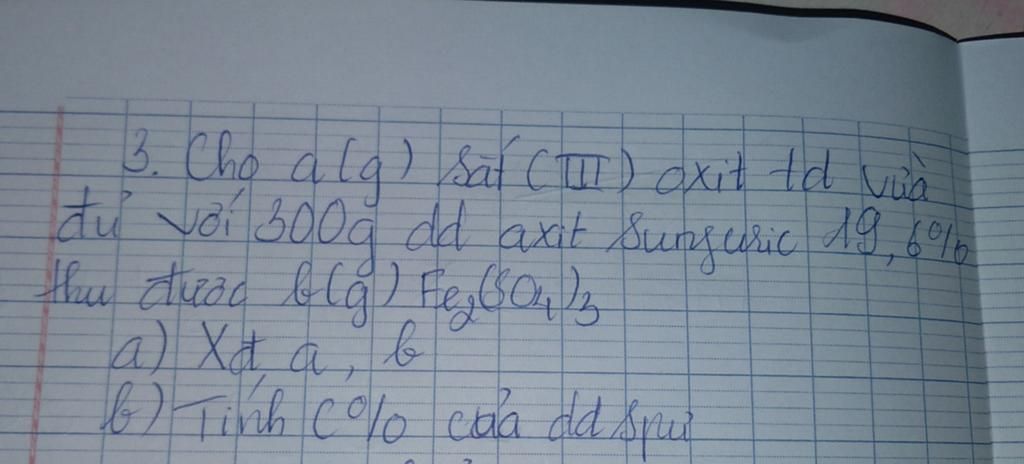 3. Cho a(g) sắt (III) oxit td vừa
đủ với 300g dd axit sunfuric 19,6%
thu được b(g) Fe₂(SO₄)₃
a) Xđ a, b
b) Tính C% của dd spư